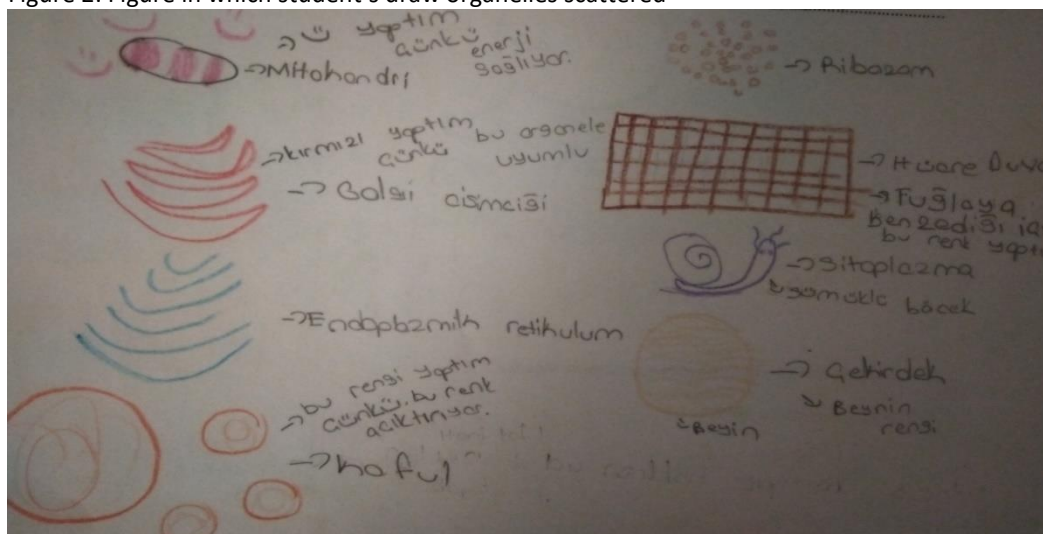 Figure 2. Figure in which student's draw organelles scattered
→ ☺ yaptım
çünkü enerji
sağlıyor.
→Mitohondri
→ Ribozom
→kırmızı yaptım
çünkü bu organele
uyumlu
→ Golgi cismciği
→ Hücre Duva
→ Tuğlaya
Benzediği iç
bu renk yaptı
→Sitoplazma
sümüklü böcek
→Endoplazmik retikulum
→ bu rengi yaptım
çünkü bu renk
acıktırıyor.
→ Koful
→ Çekirdek
Beynin
rengi
Beyin